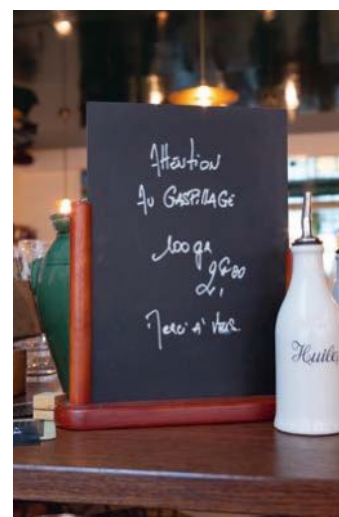 Attention
Au GASPillAGE
100 gr
2€80
Merci à vous
Huile